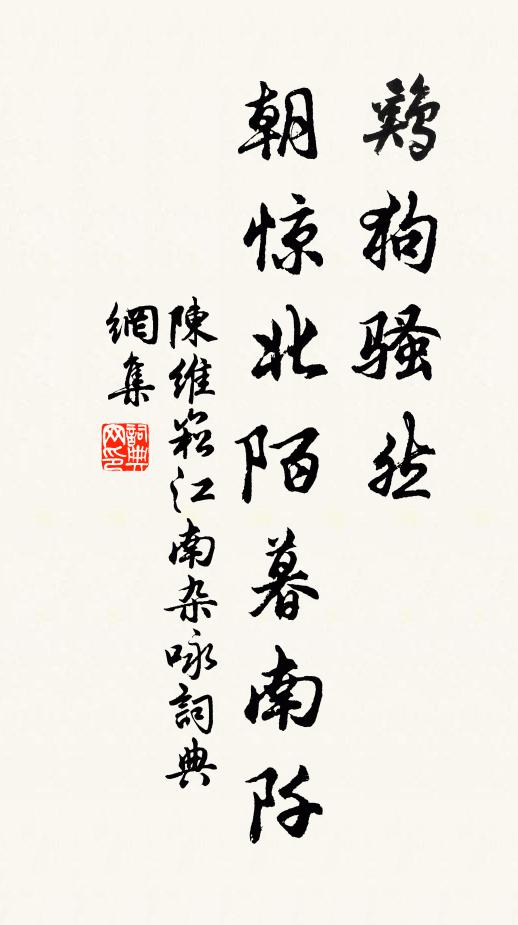 鷄狗騷然
朝惊北陌暮南阡
陳維崧江南杂咏詞典
網集
詞典
网印